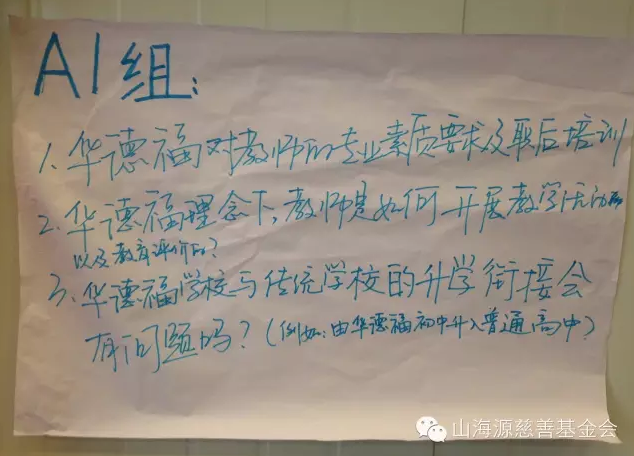 AI组:
1. 华德福对教师的专业素质要求及职后培训
2. 华德福理念下,教师是如何开展教学活动
以及教育评价的?
3. 华德福学校与传统学校的升学衔接会
有问题吗?(例如:由华德福初中升入普通高中)
山海源慈善基金会